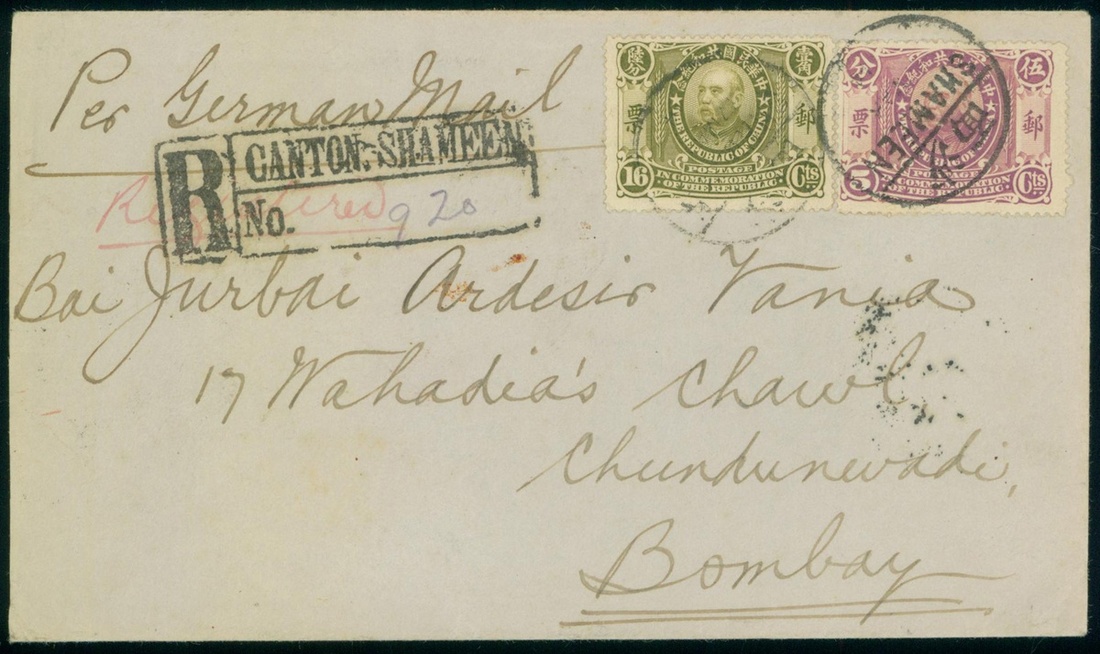 Per German Mail
R
CANTON. SHAMEEN
No. 920
Registered
壹角
陸分
中華民國共和紀念
郵
票
THE REPUBLIC OF CHINA
POSTAGE
16 IN COMMEMORATION Cts
OF THE REPUBLIC.
伍
分
郵
票
POSTAGE
5 IN COMMEMORATION Cts
OF THE REPUBLIC.
SHAMEEN
Bai Jurbai Ardesir Vania
17 Wahadia's Chawl
Chundunewadi,
Bombay